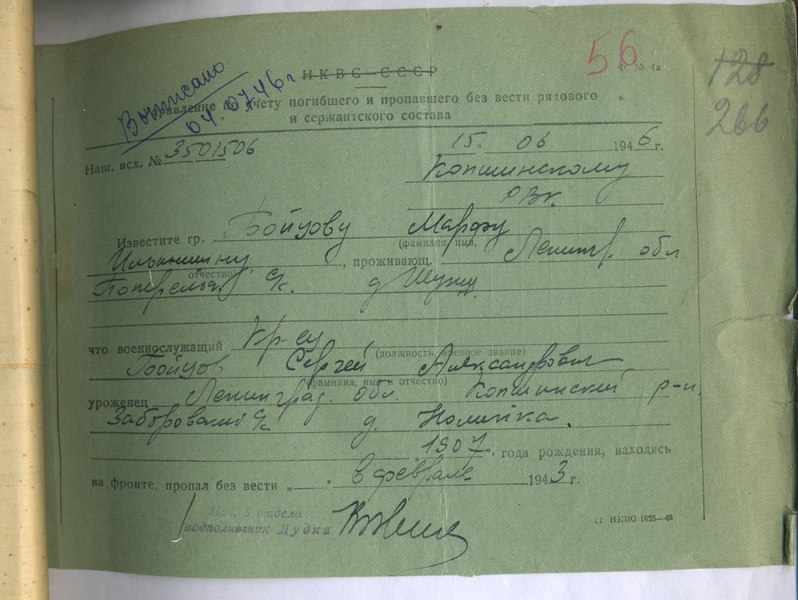 56
Ф. № 4а
128
266
Выписано
04.07.46 г
НКВС-СССР
Управление по учету погибшего и пропавшего без вести рядового
и сержантского состава
Наш. исх. № 3501506
15. 06 1946 г.
Капшинскому
РВк.
Известите гр. Бойцову Марфу
(фамилия, имя,
Ильиничну, проживающ. Ленингр. обл
отчество)
с/к. д.
что военнослужащий кр-ец
(должность, военное звание)
Бойцов Сергей Александрович
(фамилия, имя и отчество)
уроженец Ленинград. обл. Капшинский р-н,
Заборовский с/к д.
1907. года рождения, находясь
на фронте, пропал без вести „ " в феврале 1943 г.
Нач. отдела
подполковник Лувка
НКВО 1625—45